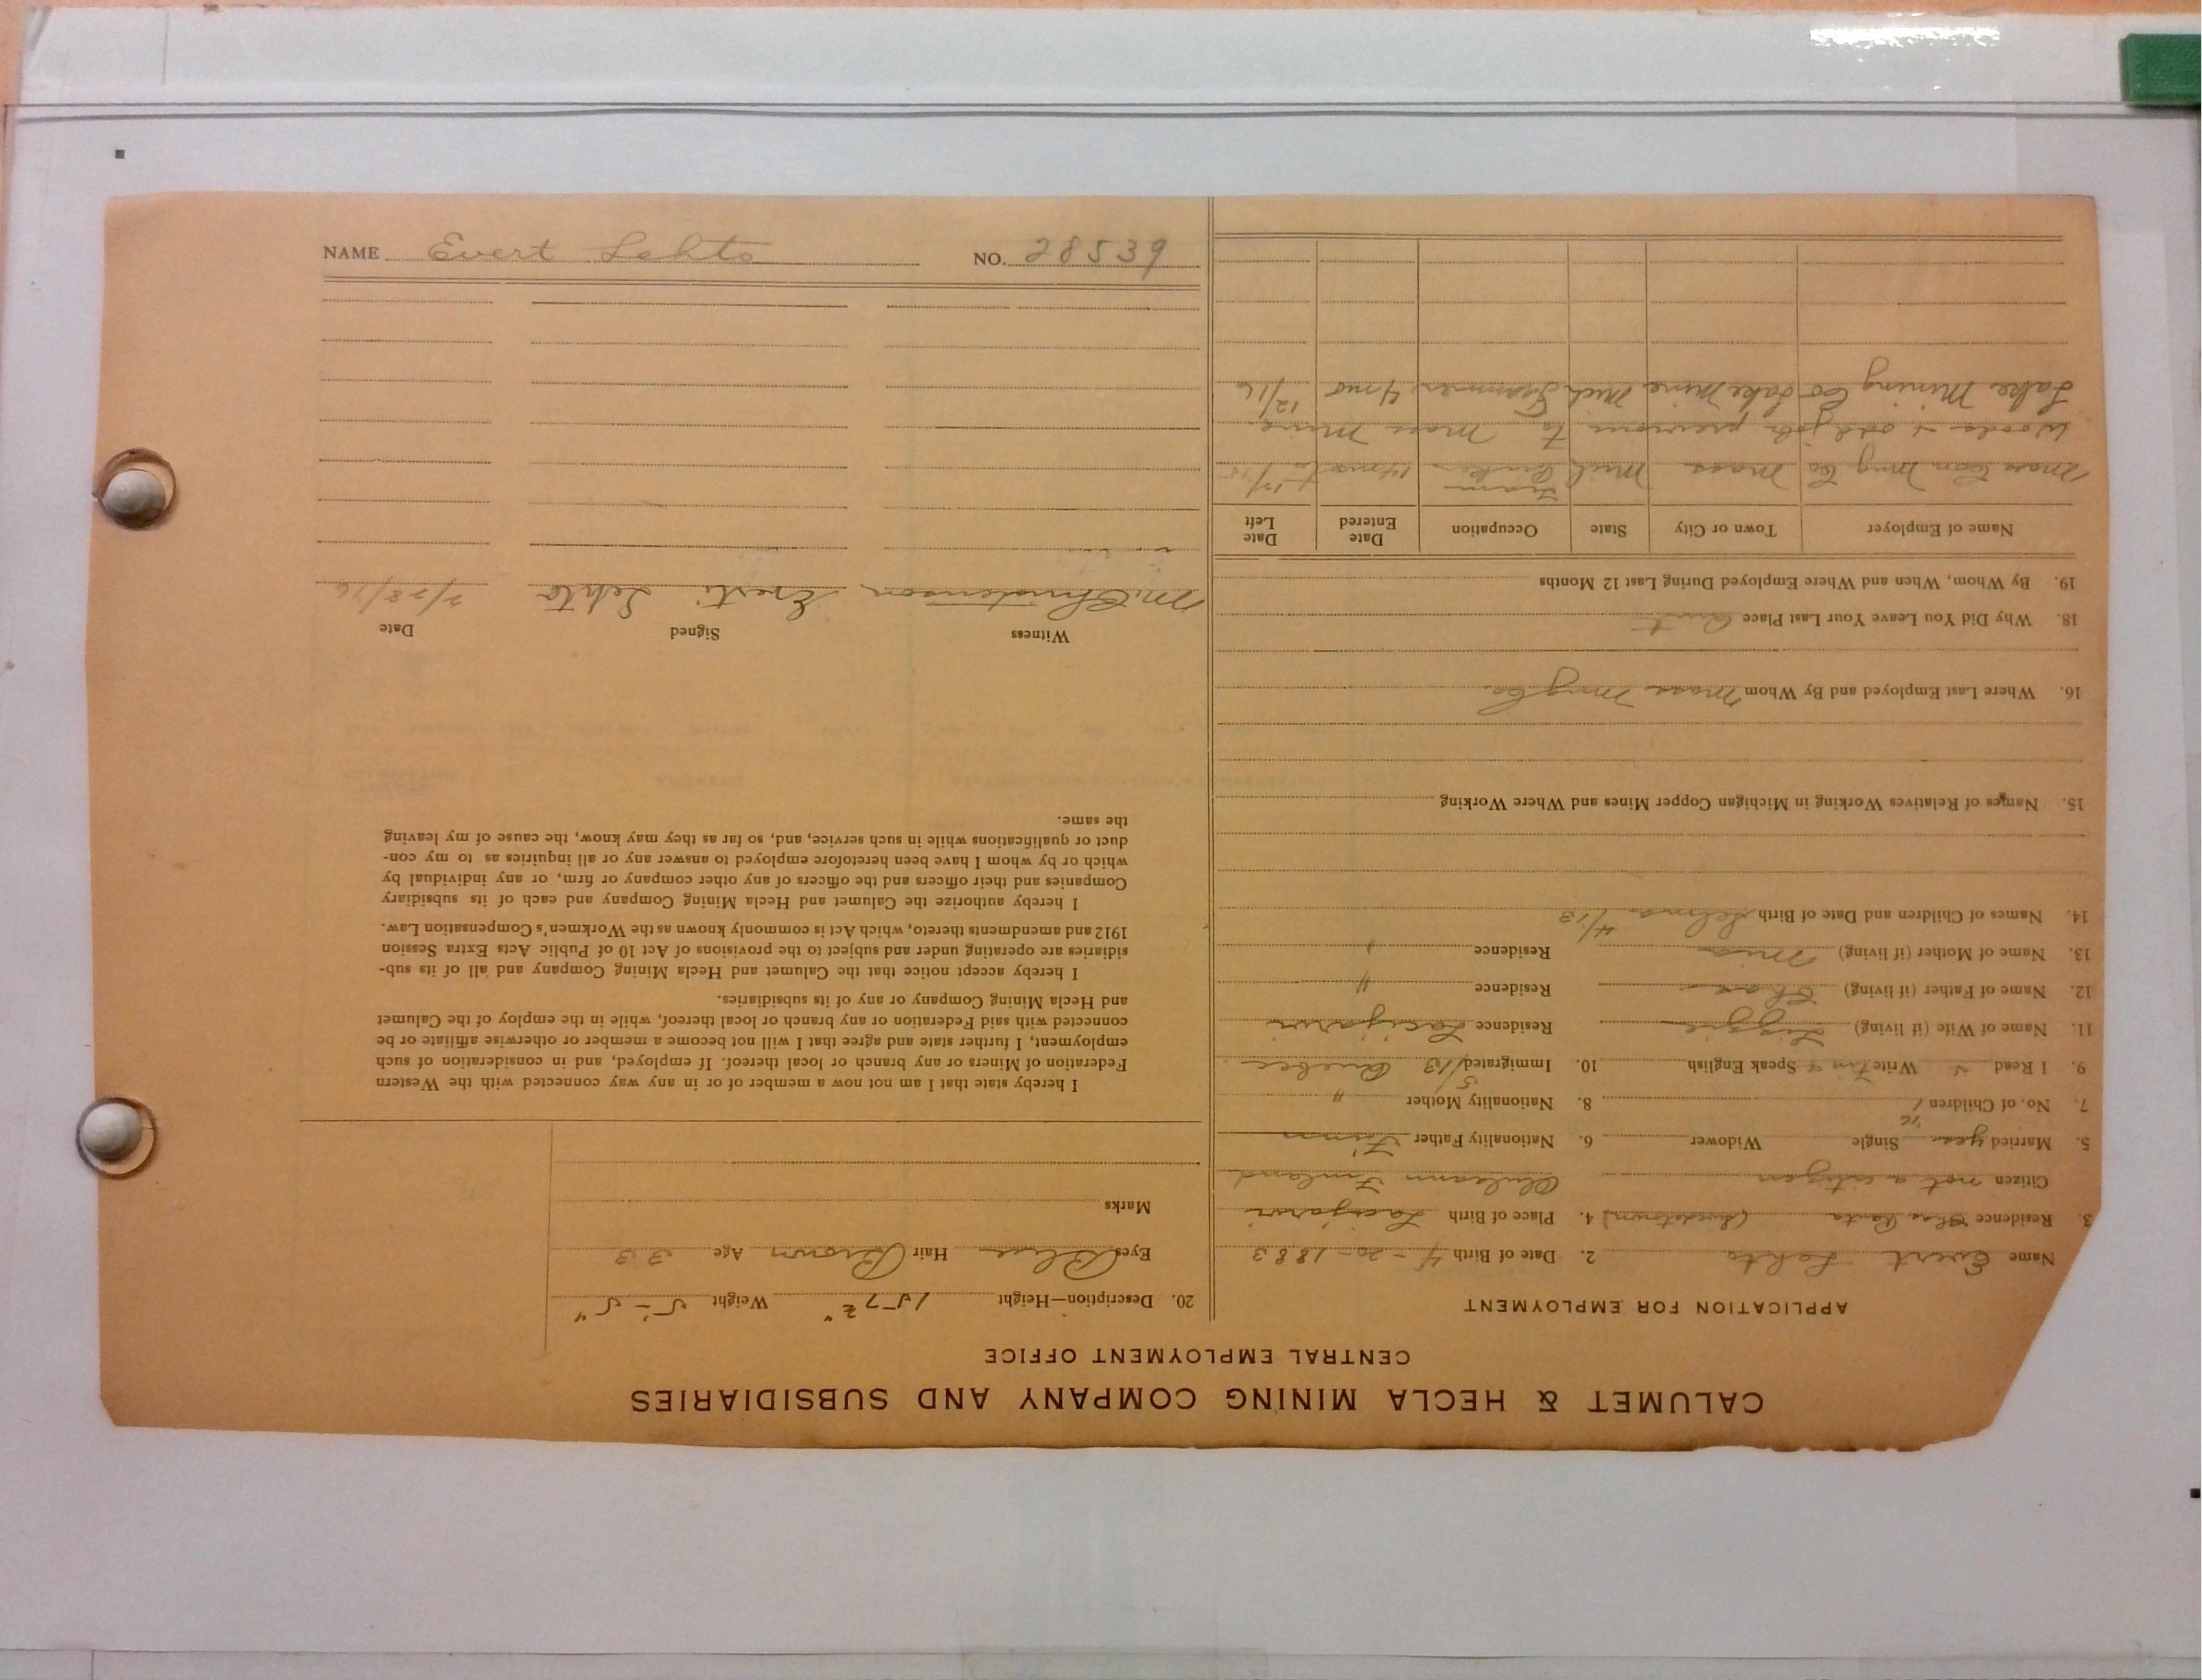 CALUMET & HECLA MINING COMPANY AND SUBSIDIARIES
CENTRAL EMPLOYMENT OFFICE
APPLICATION FOR EMPLOYMENT
Name Evert Lehto 2. Date of Birth 4-20-1883
3. Residence Chas (Swedetown) 4. Place of Birth
Citizen not a citizen Finland
5. Married yes Single Widower 6. Nationality Father Finn
7. No. of Children 1 8. Nationality Mother "
9. I Read + Write Finn + Speak English 10. Immigrated 5/13 Quebec
11. Name of Wife (if living) Lizzie Residence
12. Name of Father (if living) Chas Residence "
13. Name of Mother (if living) Residence
14. Names of Children and Date of Birth Selma 4/13
15. Names of Relatives Working in Michigan Copper Mines and Where Working
16. Where Last Employed and By Whom Mass Mng Co.
18. Why Did You Leave Your Last Place
19. By Whom, When and Where Employed During Last 12 Months
Name of Employer Town or City State Occupation Date Entered Date Left
Mass Con Mng Co Mass Mich Tram 14 mos
Woods + odd jobs previous to Mass Mine
Lake Mining Co Lake Mine Mich Trammer 4 mos 12/16
20. Description—Height 157 Weight 5'-5"
Eyes Blue Hair Brown Age 33
Marks
I hereby state that I am not now a member of or in any way connected with the Western
Federation of Miners or any branch or local thereof. If employed, and in consideration of such
employment, I further state and agree that I will not become a member or otherwise affiliate or be
connected with said Federation or any branch or local thereof, while in the employ of the Calumet
and Hecla Mining Company or any of its subsidiaries.
I hereby accept notice that the Calumet and Hecla Mining Company and all of its sub-
sidiaries are operating under and subject to the provisions of Act 10 of Public Acts Extra Session
1912 and amendments thereto, which Act is commonly known as the Workmen's Compensation Law.
I hereby authorize the Calumet and Hecla Mining Company and each of its subsidiary
Companies and their officers and the officers of any other company or firm, or any individual by
which or by whom I have been heretofore employed to answer any or all inquiries as to my con-
duct or qualifications while in such service, and, so far as they may know, the cause of my leaving
the same.
Witness Signed Date
M. Christenson Eversti Lehto 7/28/16
NAME Evert Lehto NO. 28539